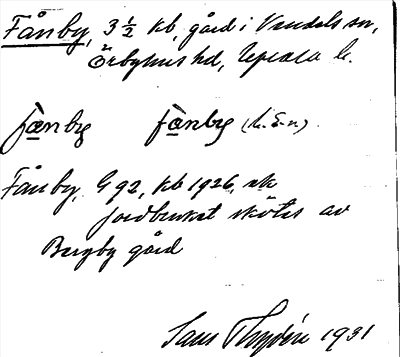 Fånby, 3 ½ kb, gård i Vendels sn,
Örbyhus hd, Uppsala l.
fǟnby fǟnby (L.E.n).
Fånby, G 92, kb 1926, ek
jordbruket skötes av
Bergby gård
Sam Thydén 1931